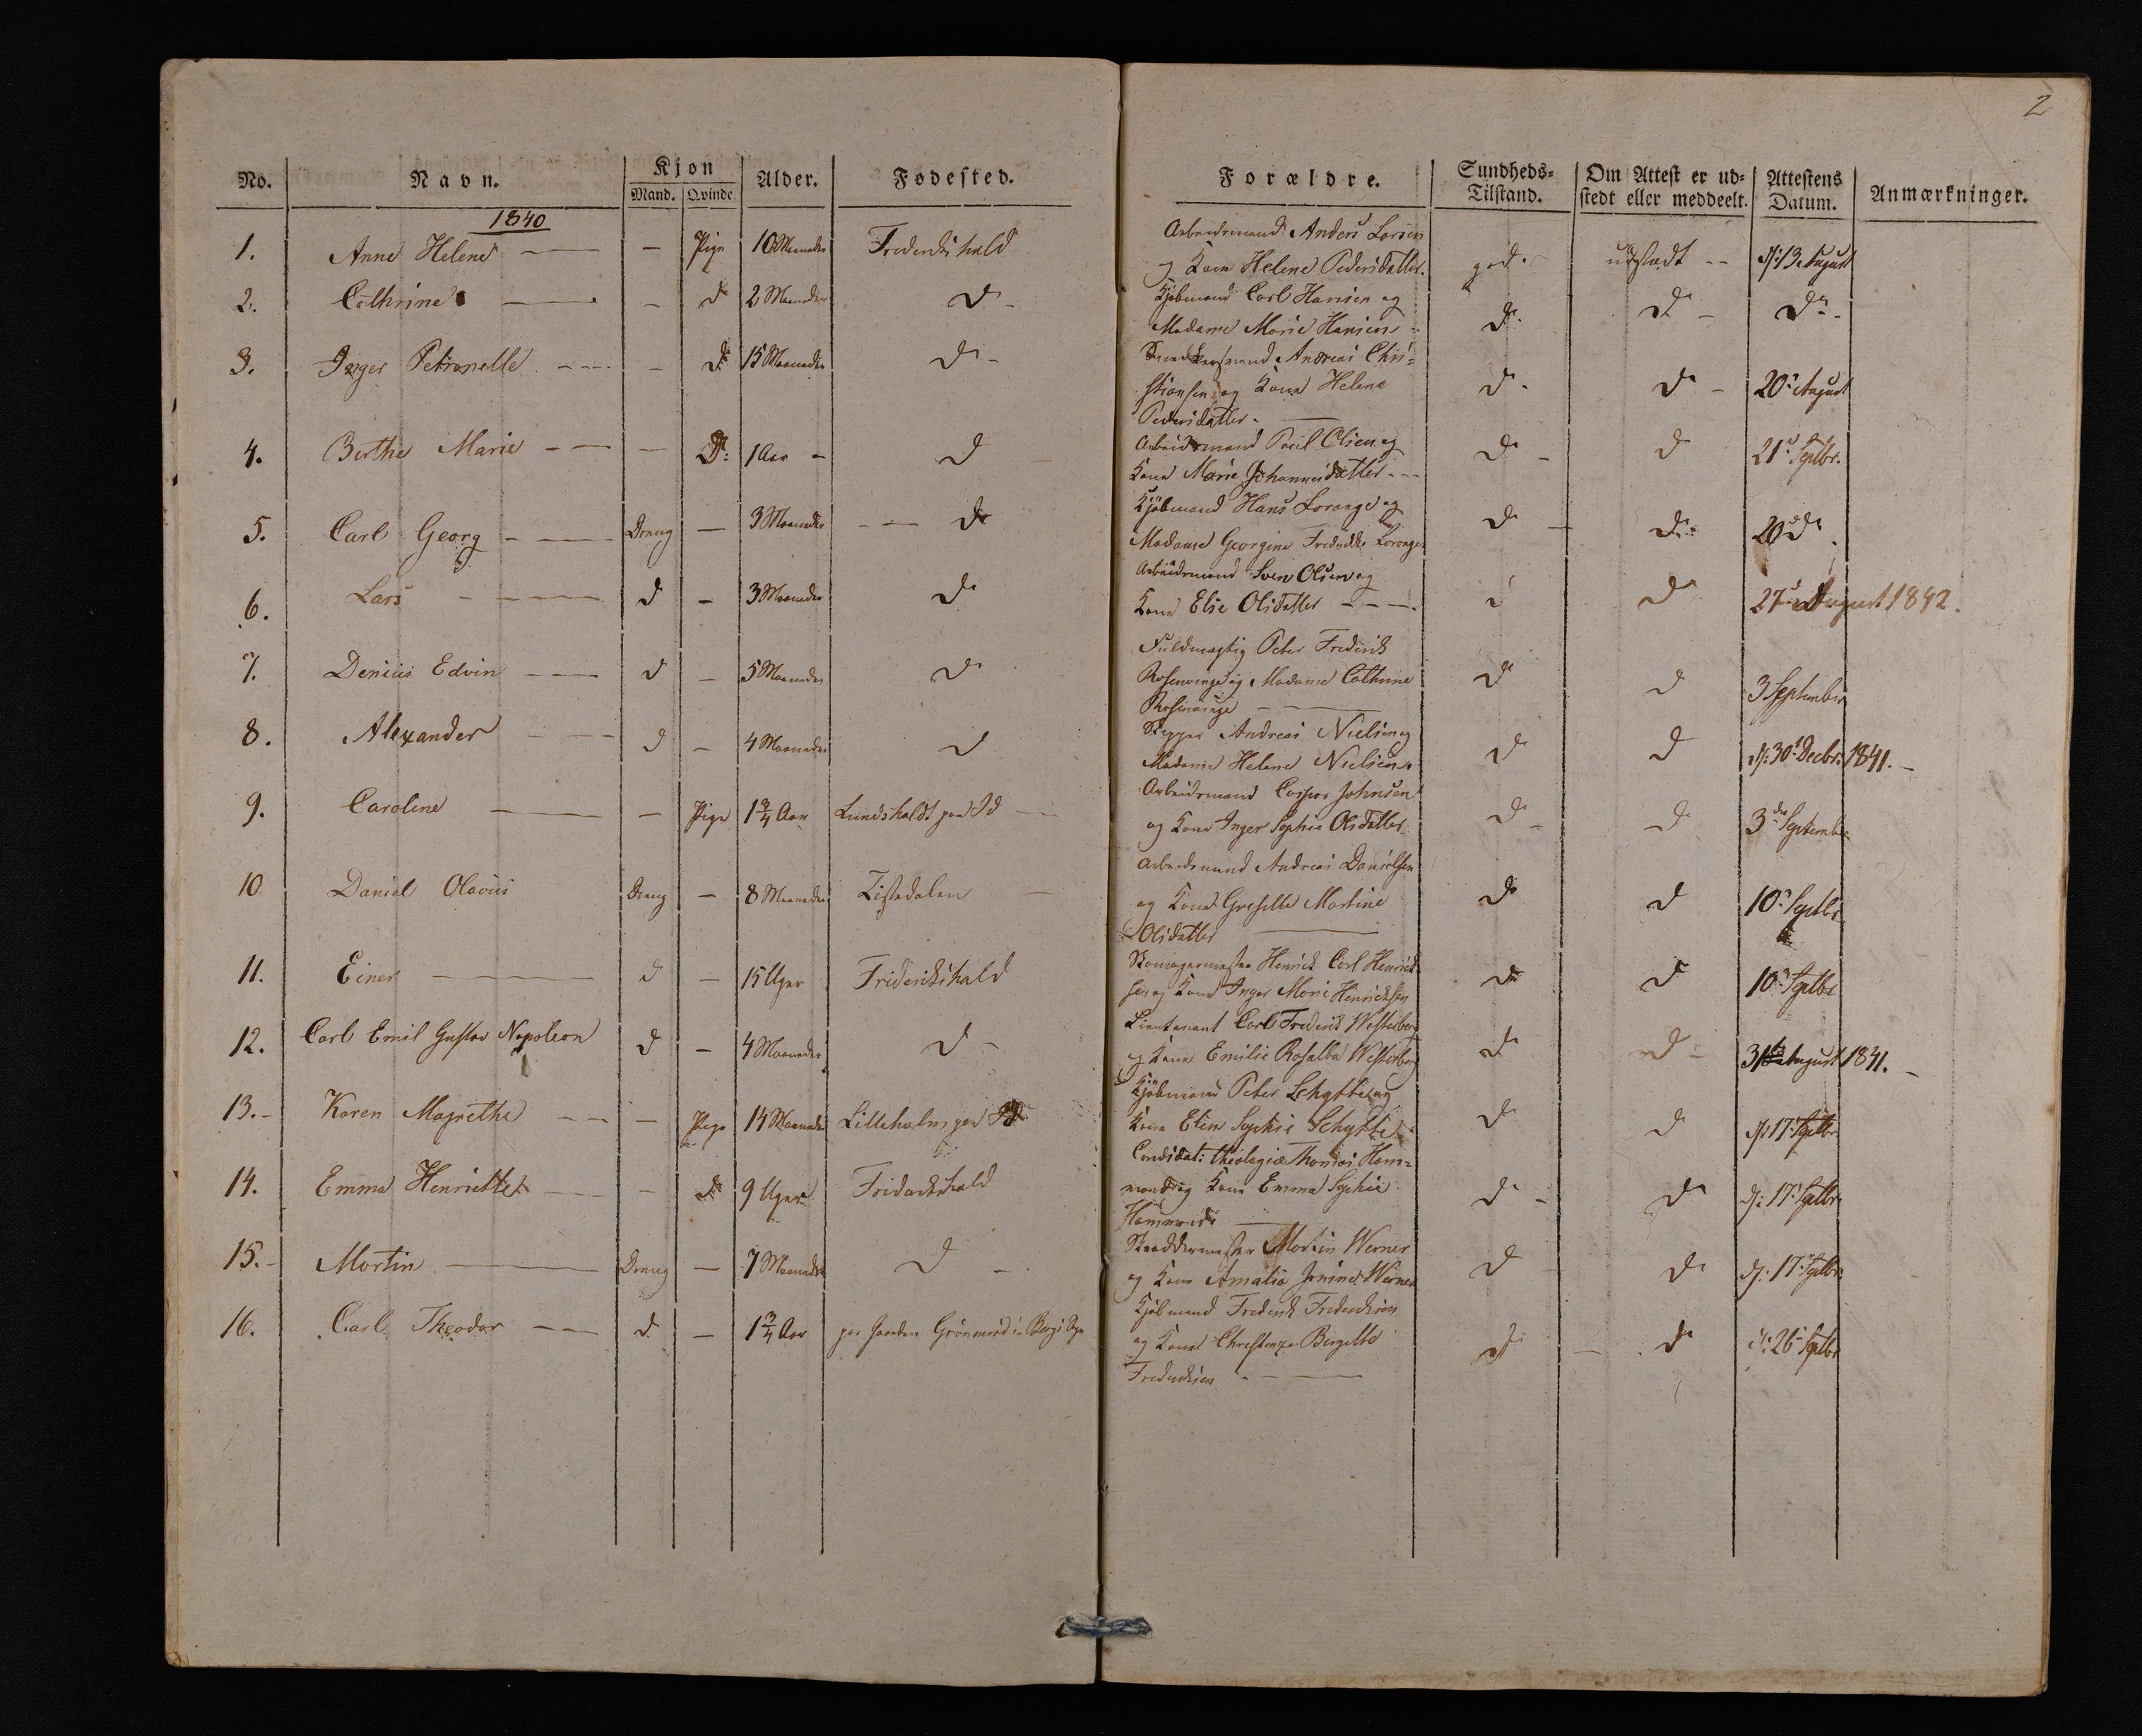 2
No. Navn. Kjøn Mand. Qvinde Alder. Fødested. Forældre. Sundheds-Tilstand. Om Attest er udstedt eller meddeelt. Attestens Datum. Anmærkninger.
1840
1. Anne Helene — — Pige 10 Maaneder Frederikshald Arbeidsmand Anders Larsen
og Kone Helene Pedersdatter. god. udstædt -- d: 13 August
2. Cathrine — — do 2 Maaneder do - Kjøbmand Carl Hansen og
Madame Marie Hansen - do do - do -
3. Inger Petronelle --- - do 15 Maaneder do - Snedkersvend Andreas Chri=
stiansen og Kone Helene do - do - 20de August
Pedersdatter. —
4. Berthe Marie - — — do: 1 Aar - do Arbeidsmand Poul Olsen og
Kone Marie Johannesdatter --- do - do 21de Septbr.
5. Carl Georg - — Dreng — 3 Maaneder -- do Kjøbmand Hans Lorange og
Madame Georgine Fredrikke Lorange do - do 20de do.
6. Lars - — do - 3 Maaneder do Arbeidsmand Sven Olsen og
Kone Elie Olsdatter ---. do do 27de August 1842.
7. Denius Edvin — do - 5 Maaneder do Fuldmægtig Peter Frederik
Rosenvinge og Madame Cathrine do do 3 September
Rosenvinge —
8. Alexander - — do - 4 Maaneder do Skipper Andreas Nielsen og
Madame Helene Nielsen. do do d: 30de Decbr: 1841. -
9. Caroline — — Pige 1 3/4 Aar Lundsholdt paa Id — Arbeidsmand Casper Johnsen
og Kone Inger Sophie Olsdatter do - do 3de September
10 Daniel Olavus Dreng — 8 Maaneder Tistedalen - Arbeidsmand Andreas Danielsen
og Kone Martine do do 10de Septbr
Olsdatter —
11. Einer — do — 15 Uger Frideriks hald Skomagermester Henrick Carl Henrick
sen og Kone Inger Marie Henricksen do do 10de Septbr
12. Carl Emil Gustav Napoleon do - 4 Maaneder do - Lieutenant Carl Frederik Westerberg
og Kone Emilie Rosalba Westerberg do do - 31te August 1841. -
13. - Karen Magrethe — — Pige 14 Maaneder Lilleholm paa Id Kjøbmand Peter Schytte og
Kone Elen Sophie Schytte. do do d: 17de Septbr
14. Emma Henriette — - do 9 Uger Fridrikshald Candidat: theologiæ Thomas Ham=
mond og Kone Emma Sophie do - do d: 17de Septbr
Hammond —
15. - Martin — Dreng — 7 Maaneder do - Skreddermester Martin Werner
og Kone Amalia Jenine Werner do do d: 17de Septbr
16. Carl Theodor — do — 1 3/4 Aar paa Gaarden i Bergs Sgn Kjøbmand Frederik Frederiksen
og Kone Christense Bergette do — do d: 26de Septbr
Frederiksen - —